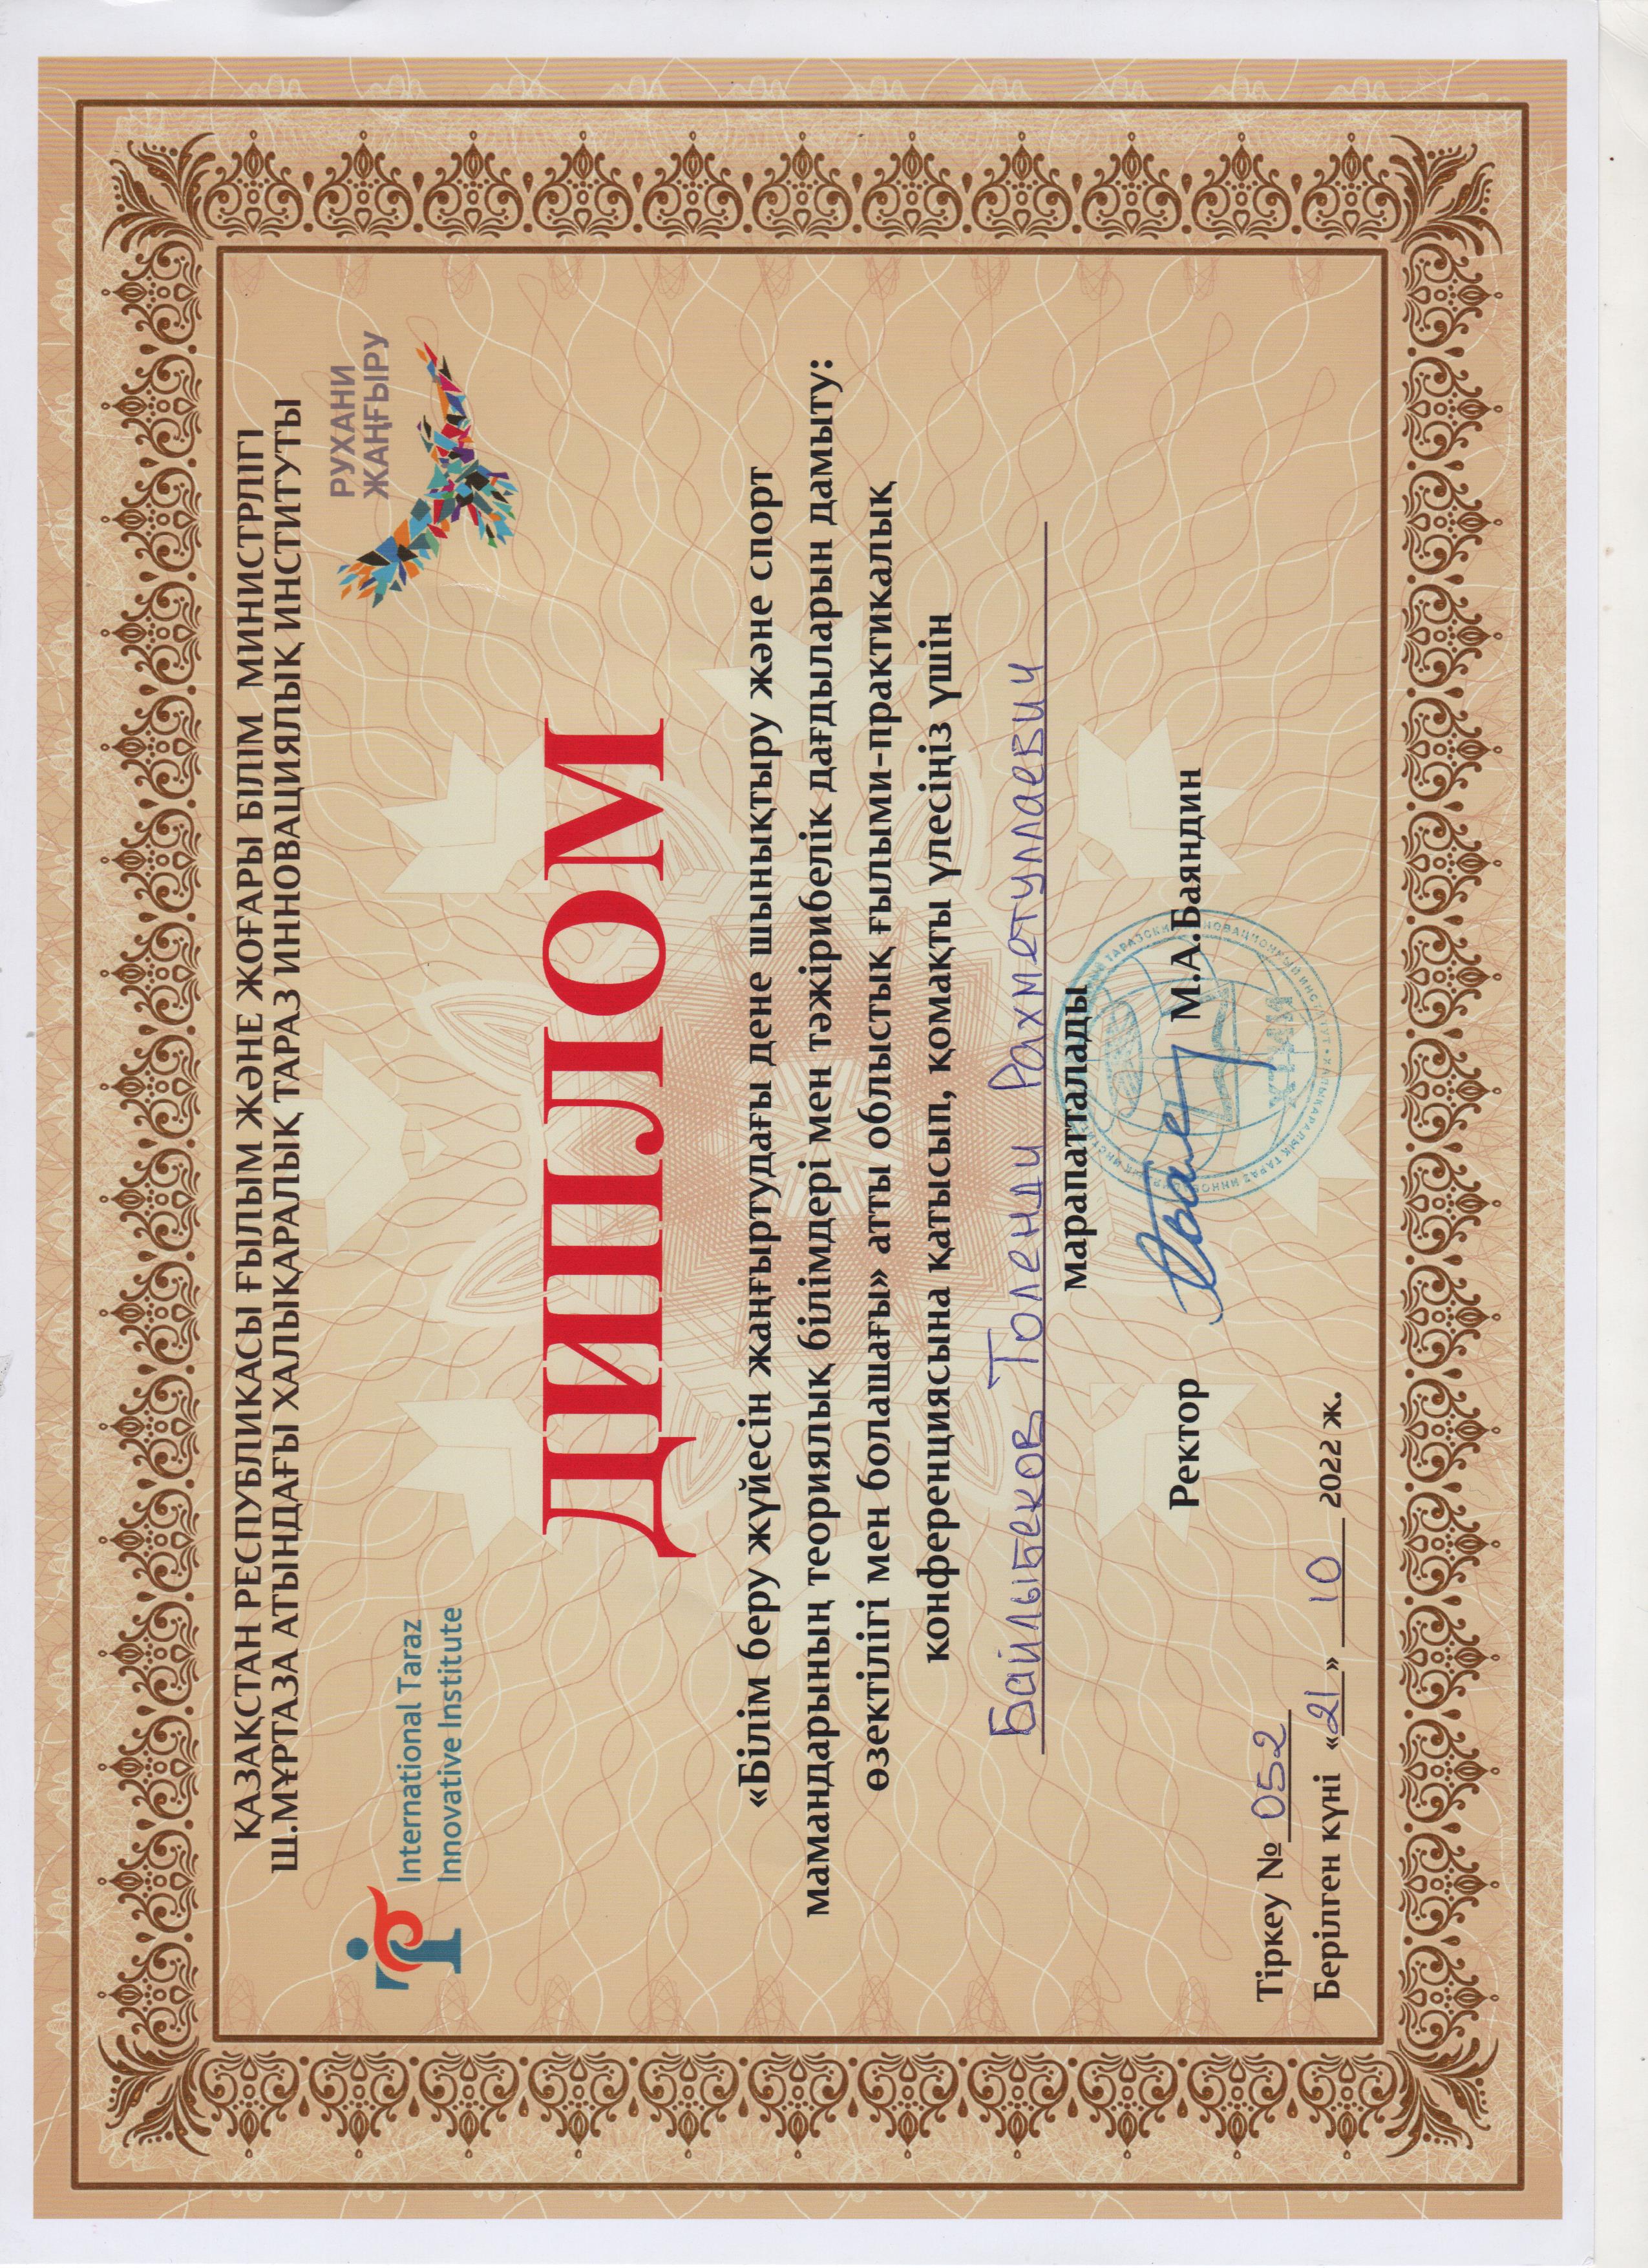 ҚАЗАҚСТАН РЕСПУБЛИКАСЫ ҒЫЛЫМ ЖӘНЕ ЖОҒАРЫ БІЛІМ МИНИСТРЛІГІ
Ш.МҰРТАЗА АТЫНДАҒЫ ХАЛЫҚАРАЛЫҚ ТАРАЗ ИННОВАЦИЯЛЫҚ ИНСТИТУТЫ
International Taraz
Innovative Institute
РУХАНИ
ЖАҢҒЫРУ
ДИПЛОМ
«Білім беру жүйесін жаңғыртудағы дене шынықтыру және спорт
мамандарының теориялық білімдері мен тәжірибелік дағдыларын дамыту:
өзектілігі мен болашағы» атты облыстық ғылыми-практикалық
конференциясына қатысып, қомақты үлесіңіз үшін
Байлыбеков Толенди Рахметуллаевич
марапатталады
Ректор М.А.Баяндин
Тіркеу № 052
Берілген күні «21» 10 2022 ж.